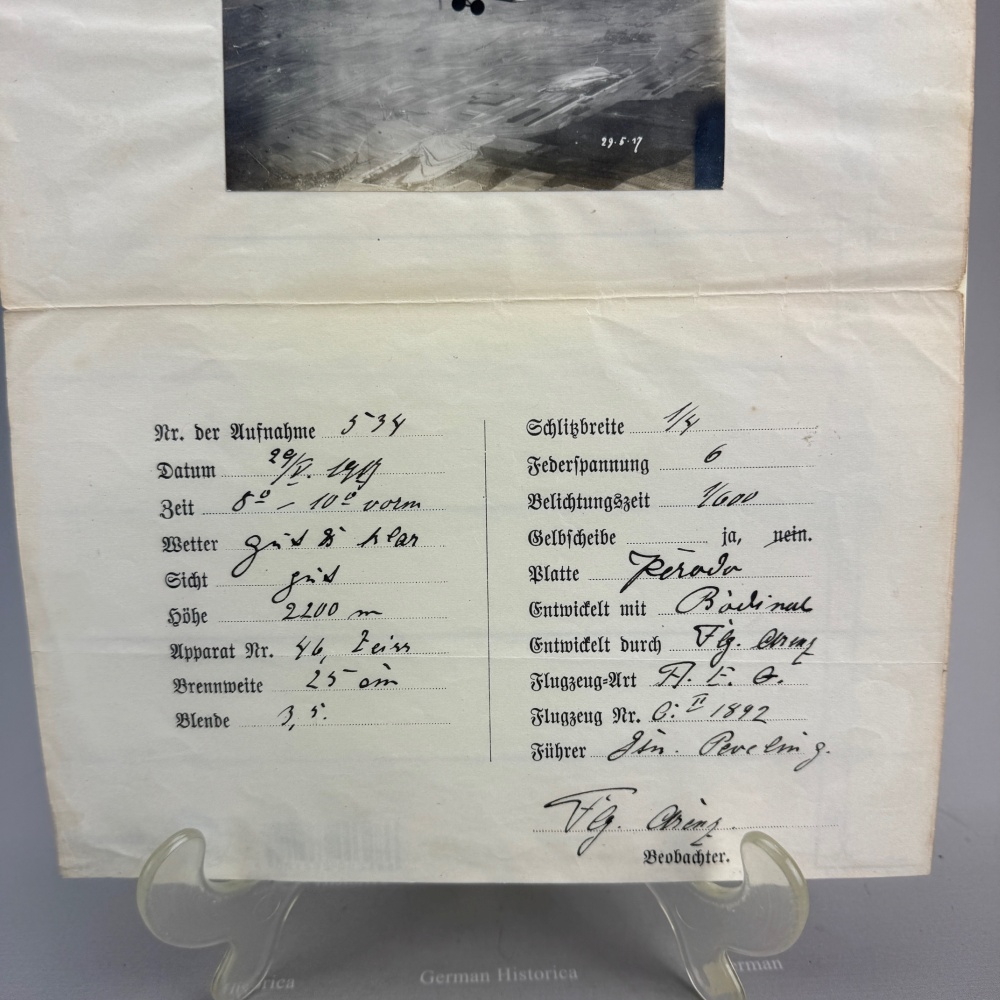 29.5.17
Nr. der Aufnahme 534
Datum 29/V. 1917
Zeit 8⁰ – 10⁰ vorm
Wetter gut & klar
Sicht gut
Höhe 2200 m
Apparat Nr. 46, Zeiss
Brennweite 25 cm
Blende 3,5.
Schlitzbreite 1/4
Federspannung 6
Belichtungszeit 1/600
Gelbscheibe ja, nein.
Platte
Entwickelt mit Rodinal
Entwickelt durch Flg.
Flugzeug-Art
Flugzeug Nr. C. II 1892
Führer Peveling.
Flg.
Beobachter.
German Historica